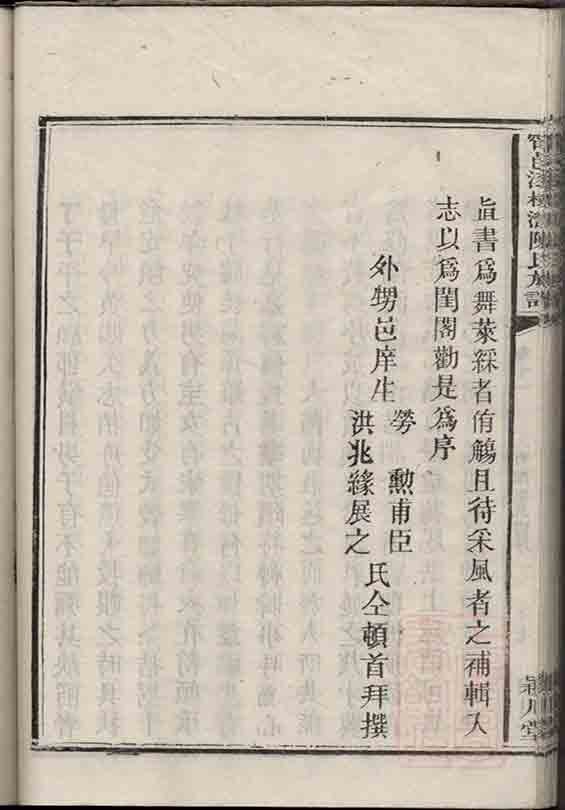 旨書爲舞萊綵者侑觴且待采風者之補輯入
志以爲閨閣勸是爲序
外甥邑庠生
勞勲甫臣
洪兆緣展之
氏仝頓首拜撰
陳氏族譜
潁川堂